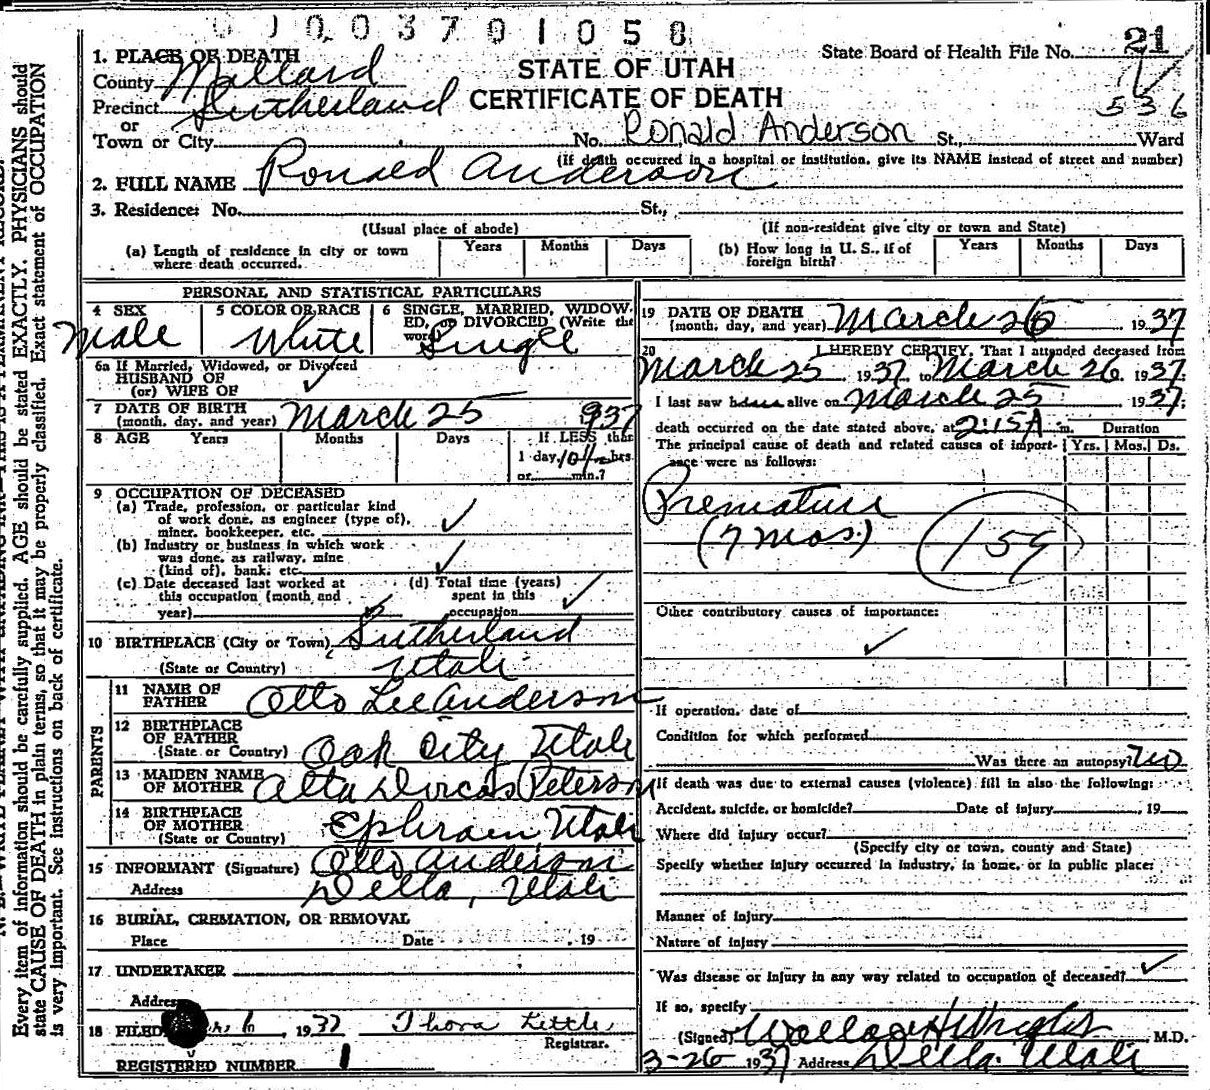 0003701058
State Board of Health File No. 21
536
STATE OF UTAH
CERTIFICATE OF DEATH
1. PLACE OF DEATH
County Millard
Precinct Sutherland
or
Town or City No. Ronald Anderson St., Ward
(If death occurred in a hospital or institution, give its NAME instead of street and number)
2. FULL NAME Ronald Anderson
3. Residence: No. St.,
(Usual place of abode) (If non-resident give city or town and State)
(a) Length of residence in city or town where death occurred. Years Months Days (b) How long in U. S., if of foreign birth? Years Months Days
PERSONAL AND STATISTICAL PARTICULARS
4 SEX Male
5 COLOR OR RACE White
6 SINGLE, MARRIED, WIDOWED, OR DIVORCED (Write the word) Single
6a If Married, Widowed, or Divorced
HUSBAND OF
(or) WIFE OF ✓
7 DATE OF BIRTH
(month, day, and year) March 25 1937
8 AGE Years Months Days If LESS than
1 day, 10½ hrs.
or min.?
9 OCCUPATION OF DECEASED
(a) Trade, profession, or particular kind
of work done, as engineer (type of),
miner, bookkeeper, etc. ✓
(b) Industry or business in which work
was done, as railway, mine
(kind of), bank, etc. ✓
(c) Date deceased last worked at
this occupation (month and
year) ✓
(d) Total time (years)
spent in this
occupation ✓
10 BIRTHPLACE (City or Town) Sutherland
(State or Country) Utah
PARENTS
11 NAME OF
FATHER Otto Lee Anderson
12 BIRTHPLACE
OF FATHER
(State or Country) Oak City Utah
13 MAIDEN NAME
OF MOTHER Alta Dorcas Peterson
14 BIRTHPLACE
OF MOTHER
(State or Country) Ephraim Utah
15 INFORMANT (Signature) Otto Anderson
Address Delta, Utah
16 BURIAL, CREMATION, OR REMOVAL
Place Date , 19
17 UNDERTAKER
Address
18 FILED 6, 1937 Thora Little
Registrar.
REGISTERED NUMBER 1
19 DATE OF DEATH
(month, day, and year) March 26 1937
20 I HEREBY CERTIFY, That I attended deceased from
March 25, 1937, to March 26 1937.
I last saw him alive on March 25 1937;
death occurred on the date stated above, at 2:15A m. Duration
The principal cause of death and related causes of importance were as follows: Yrs. Mos. Ds.
Premature
(7 mos.) 159
Other contributory causes of importance:
✓
If operation, date of
Condition for which performed
Was there an autopsy? no
If death was due to external causes (violence) fill in also the following:
Accident, suicide, or homicide? Date of injury , 19
Where did injury occur?
(Specify city or town, county and State)
Specify whether injury occurred in industry, in home, or in public place:
Manner of injury
Nature of injury
Was disease or injury in any way related to occupation of deceased? ✓
If so, specify
(Signed) Wallace H Wright M.D.
3-26 1937 Address Delta. Utah
Every item of information should be carefully supplied. AGE should be stated EXACTLY. PHYSICIANS should
state CAUSE OF DEATH in plain terms, so that it may be properly classified. Exact statement of OCCUPATION
is very important. See instructions on back of certificate.